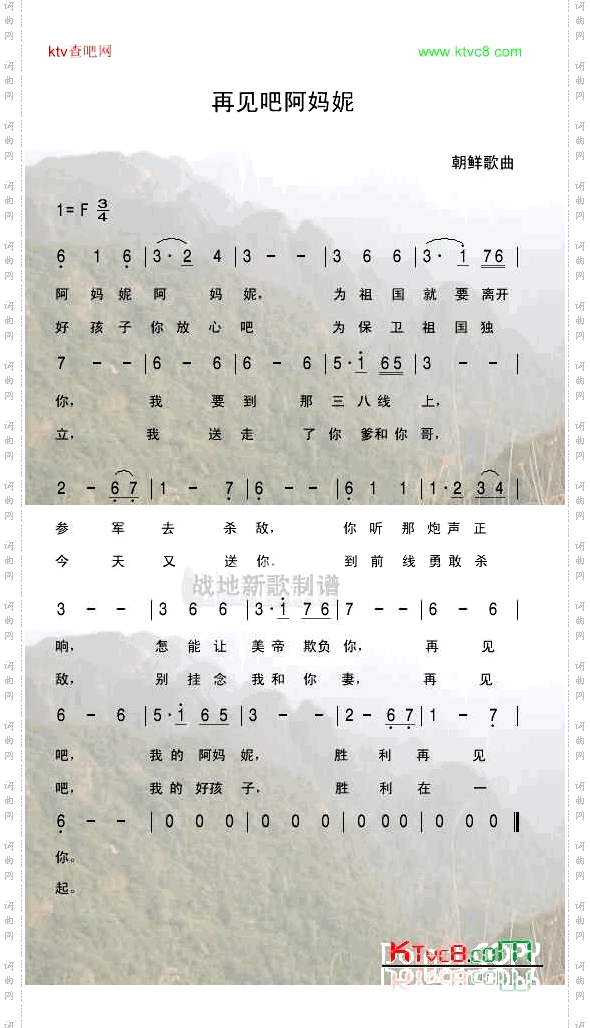 ktv查吧网
www.ktvc8.com
再见吧阿妈妮
朝鲜歌曲
1=F 3/4
6 1 6 | 3·2 4 | 3 - - | 3 6 6 | 3· 1 76 |
阿妈妮阿 妈 妮, 为祖国就要离开
好孩子你放心吧 为保卫祖国独
7 - - | 6 - 6 | 6 - 6 | 5·1 65 | 3 - - |
你, 我 要到 那三八线上,
立, 我 送走 了你爹和你哥,
2 - 67 | 1 - 7 | 6 - - | 6 1 1 | 1·2 34 |
参 军去 杀敌, 你听那炮声正
今 天又 送你. 到前线勇敢杀
战地新歌制谱
3 - - | 3 6 6 | 3·1 76 | 7 - - | 6 - 6 |
响, 怎能让美帝欺负你, 再 见
敌, 别挂念我和你妻, 再 见
6 - 6 | 5·1 65 | 3 - - | 2 - 67 | 1 - 7 |
吧, 我的阿妈妮, 胜利再见
吧, 我的好孩子, 胜利在一
6 - - | 0 0 0 | 0 0 0 | 0 0 0 | 000 | 0 0 0 ‖
你。
起。
KTvc8.com